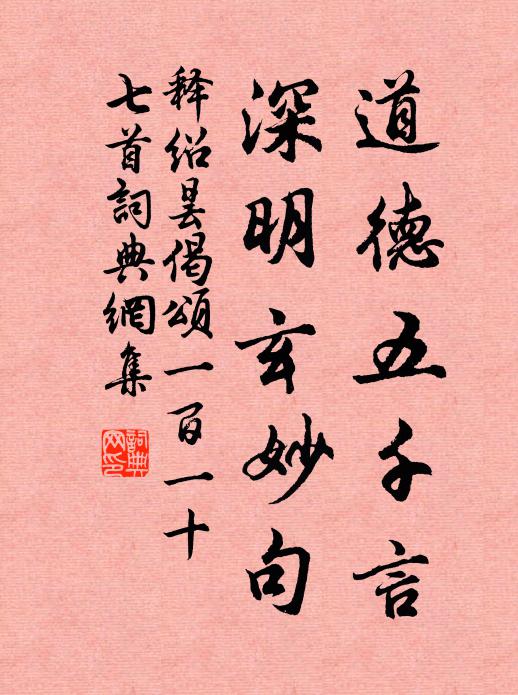 道德五千言
深明玄妙句
释绍昙偈颂一百一十
七首詞典網集
詞典
网印